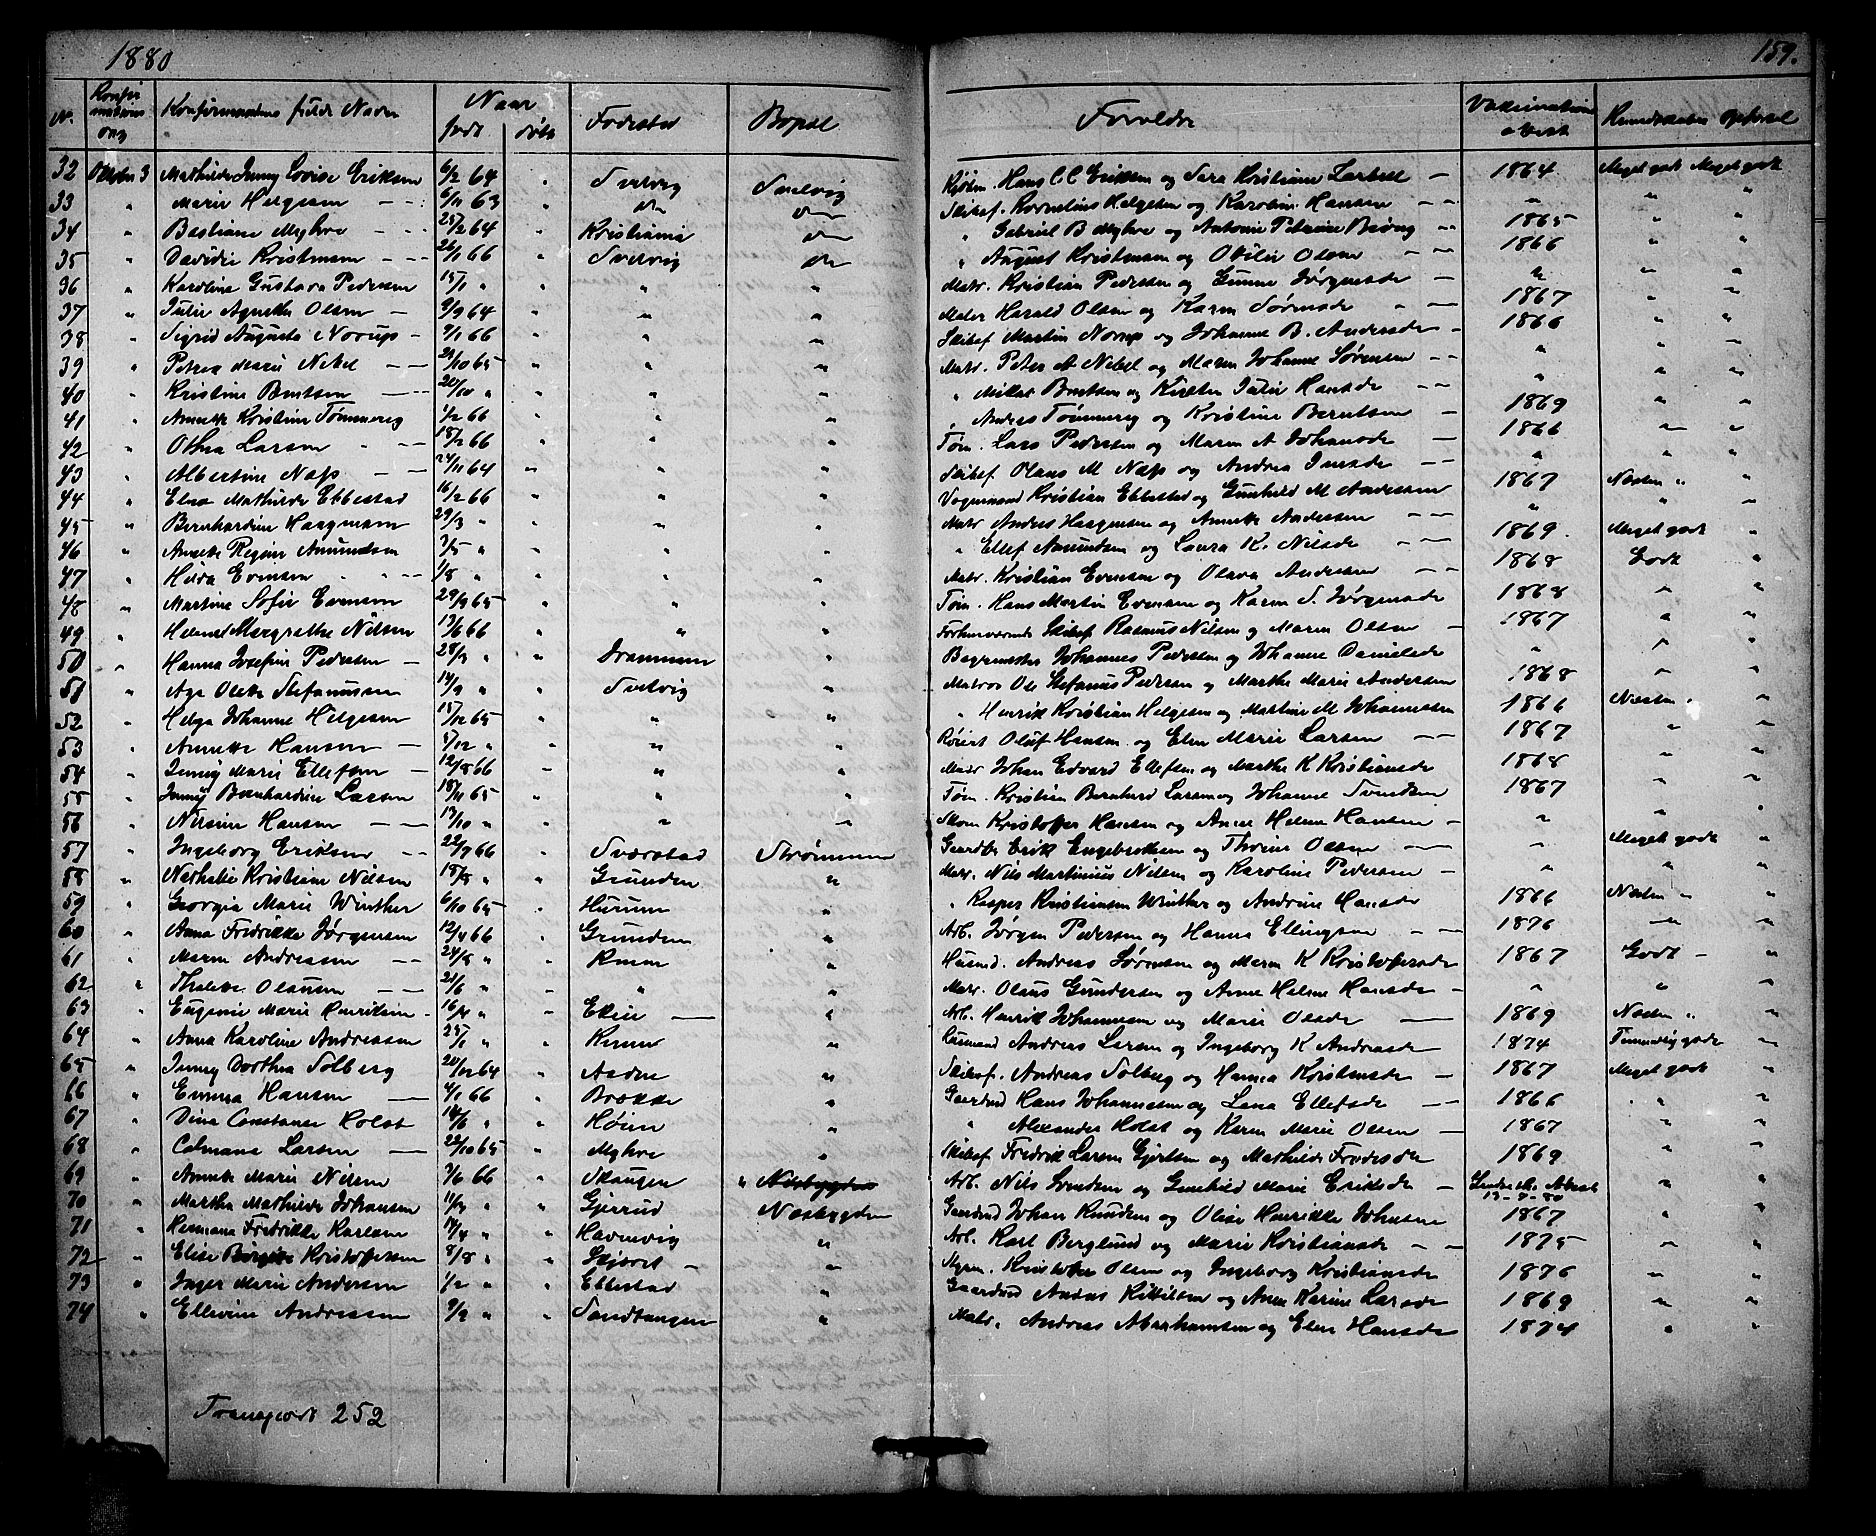 1880 159.
No. Konfirmations dag Konfirmantens fulde Navn Naar født døbt Fødested Bopæl Forældre Vaksinations attest Kundskaber Opførsel
32 Oktober 3 Mathilde Jenny Lovise Eriksen 6/2 64 " Svelvig Svelvig Kjøbm. Hans C. C. Eriksen og Sara Kristiane — 1864 Meget godt Meget godt
33 " Marie Helgesen 6/11 63 " do do Skibsf. Kornelius Helgesen og Karoline Hansen " " "
34 " Bastiane Myhre 25/2 64 " Kristiania do " Gabriel B Myhre og Antonie Petrine 1865 " "
35 " Davidie Kristensen 26/1 66 " Svelvig do " August Kristensen og Otilie Olsen 1866 " "
36 " Karoline Gustava Pedersen 15/1 " " " " Matr. Kristian Pedersen og Gunne Jørgensde " " "
37 " Julie Agnethe Olsen 9/9 64 " " " Matr Harald Olsen og Karen Sørensde 1867 " "
38 " Sigrid Augusta Norup 9/1 66 " " " Skibsf Martin Norup og Johanne B. Andersde 1866 " "
39 " Petrea Marie Nebel 21/10 65 " " " Matr. Peter A Nebel og Maren Johanne Sørensen " " "
40 " Kristine Berntsen 20/10 " " " " " Mikal Berntsen og Kirsten Julie Hansde " " "
41 " Annette Kristine Tømmereg 1/2 66 " " " " Anders Tømmereg og Kristine Berntsen 1869 " "
42 " Othea Larsen 18/2 66 " " " Tøm. Lars Pedersen og Maren A Johansde 1866 " "
43 " Albertine Næss 24/11 64 " " " Skibsf Olaus M Næss og Andrea Jensde " " "
44 " Elna Mathilde Ebbestad 16/2 66 " " " Vognmand Kristian Ebbestad og Gunhild M Andersen 1867 Næsten " "
45 " Bernhardine Haagensen 29/3 " " " " Matr Anders Haagensen og Annette Andersen " " "
46 " Annette Regine Amundsen 3/5 " " " " " Ellef Amundsen og Laura K. Nilsde 1869 Meget godt "
47 " Hilda Evensen 1/8 " " " " Matr. Kristian Evensen og Olava Andersen 1868 Godt "
48 " Martine Sofie Evensen 29/9 65 " " " Tøm. Hans Martin Evensen og Karen S. Jørgensde 1868 " "
49 " Helene Margrethe Nilsen 13/6 66 " " " Forhenværende Skibsf Rasmus Nilsen og Maren Olsen 1867 " "
50 " Hanna Josefine Pedersen 28/3 " " Drammen " Bagermester Johannes Pedersen og Johanne Danielsde " " "
51 " Olette Stefanussen 14/9 " " Svelvig " Matros Ole Stefanus Pedersen og Marthe Marie Andersen 1868 " "
52 " Helga Johanne Helgesen 15/12 65 " " " " Henrik Kristian Helgesen og Martine M Johannesen 1866 Næsten " "
53 " Annette Hansen 5/12 " " " " Oluf Hansen og Elen Marie Larsen 1867 " "
54 " Jenny Marie Ellefsen 12/8 66 " " " Matr Johan Edvard Ellefsen og Marthe K Kristiansde 1868 " "
55 " Jenny Bernhardine Larsen 18/11 65 " " " Tøm. Kristian Bernhard Larsen og Johanne Svendsen 1867 " "
56 " Nilsine Hansen 13/10 " " " " Skom Kristoffer Hansen og Anne Helene Hansen " " "
57 " Ingeborg Eriksen 22/7 66 " Sværstad Strømmen Erik Engebretsen og Thrine Olsen " Meget godt "
58 " Nathalie Kristiane Nilsen 15/8 " " Grunden " Matr. Nils Martinius Nilsen og Karoline Pedersen " " "
59 " Georgia Marie Winther 6/10 65 " Hurum " " Kasper Kristiansen Winther og Andrine Hansde 1866 Næsten " "
60 " Anna Fredrikke Jørgensen 12/4 66 " Grunden " Arb. Jørgen Pedersen og Hanna Ellingsen 1876 " "
61 " Maren Andreassen 24/8 " " " Husmd. Andreas Sørensen og Maren K Kristofersde 1867 Godt "
62 " Thalette Olausen 21/6 " " " " Matr. Olaus Gundersen og Anne Helene Hansde " " "
63 " Eugenie Marie Henriksen 16/4 " " " Arb. Henrik Johannesen og Marie Olsde 1869 Næsten " "
64 " Anna Karoline Andreassen 25/1 " " " Husmand Andreas Larsen og Ingeborg K Andreasde 1874 Temmelig godt "
65 " Jenny Dorthea Solberg 20/12 64 " " Skibsf. Andreas Solberg og Hanna Kristensde 1867 Meget godt "
66 " Emma Hansen 4/1 66 " Brække " Gaardmd Hans Johannesen og Lena Ellefsde 1866 " "
67 " Dina Constanse Holst 14/6 " " Høien " " Alexander Holst og Karen Marie Olsen 1867 " "
68 " Larsen 22/10 65 " Myhre " Skibsf Fredrik Larsen Gjertsen og Mathilde 1869 " "
69 " Annette Marie Nilsen 3/6 66 " Skaugen " Nesbygden Arb. Nils Svendsen og Gunhild Marie Eriksde Attest "
70 " Martha Mathilde Johansen 11/3 " " Gjerrud Nesbygden Gaardmd Johan Knudsen og Olise Henrikke Johnsen 1867 " "
71 " Hermana Fredrikke Karlsen 17/4 " " Havnevig " Arb. Karl Berglund og Marie Kristiansde 1875 " "
72 " Elise Kristoffersen 8/8 " " " Kristoffer Olsen og Ingeborg Kristiansde 1876 " "
73 " Inger Marie Andersen 1/2 " " Ebbestad " Gaardmd Anders Kittilsen og Anne Karine Larsde 1869 " "
74 " Ellevine Andreassen 9/9 " " Sandtangen " Matr. Andreas Abrahamsen og Elen Hansde 1874 " "
Transport 252